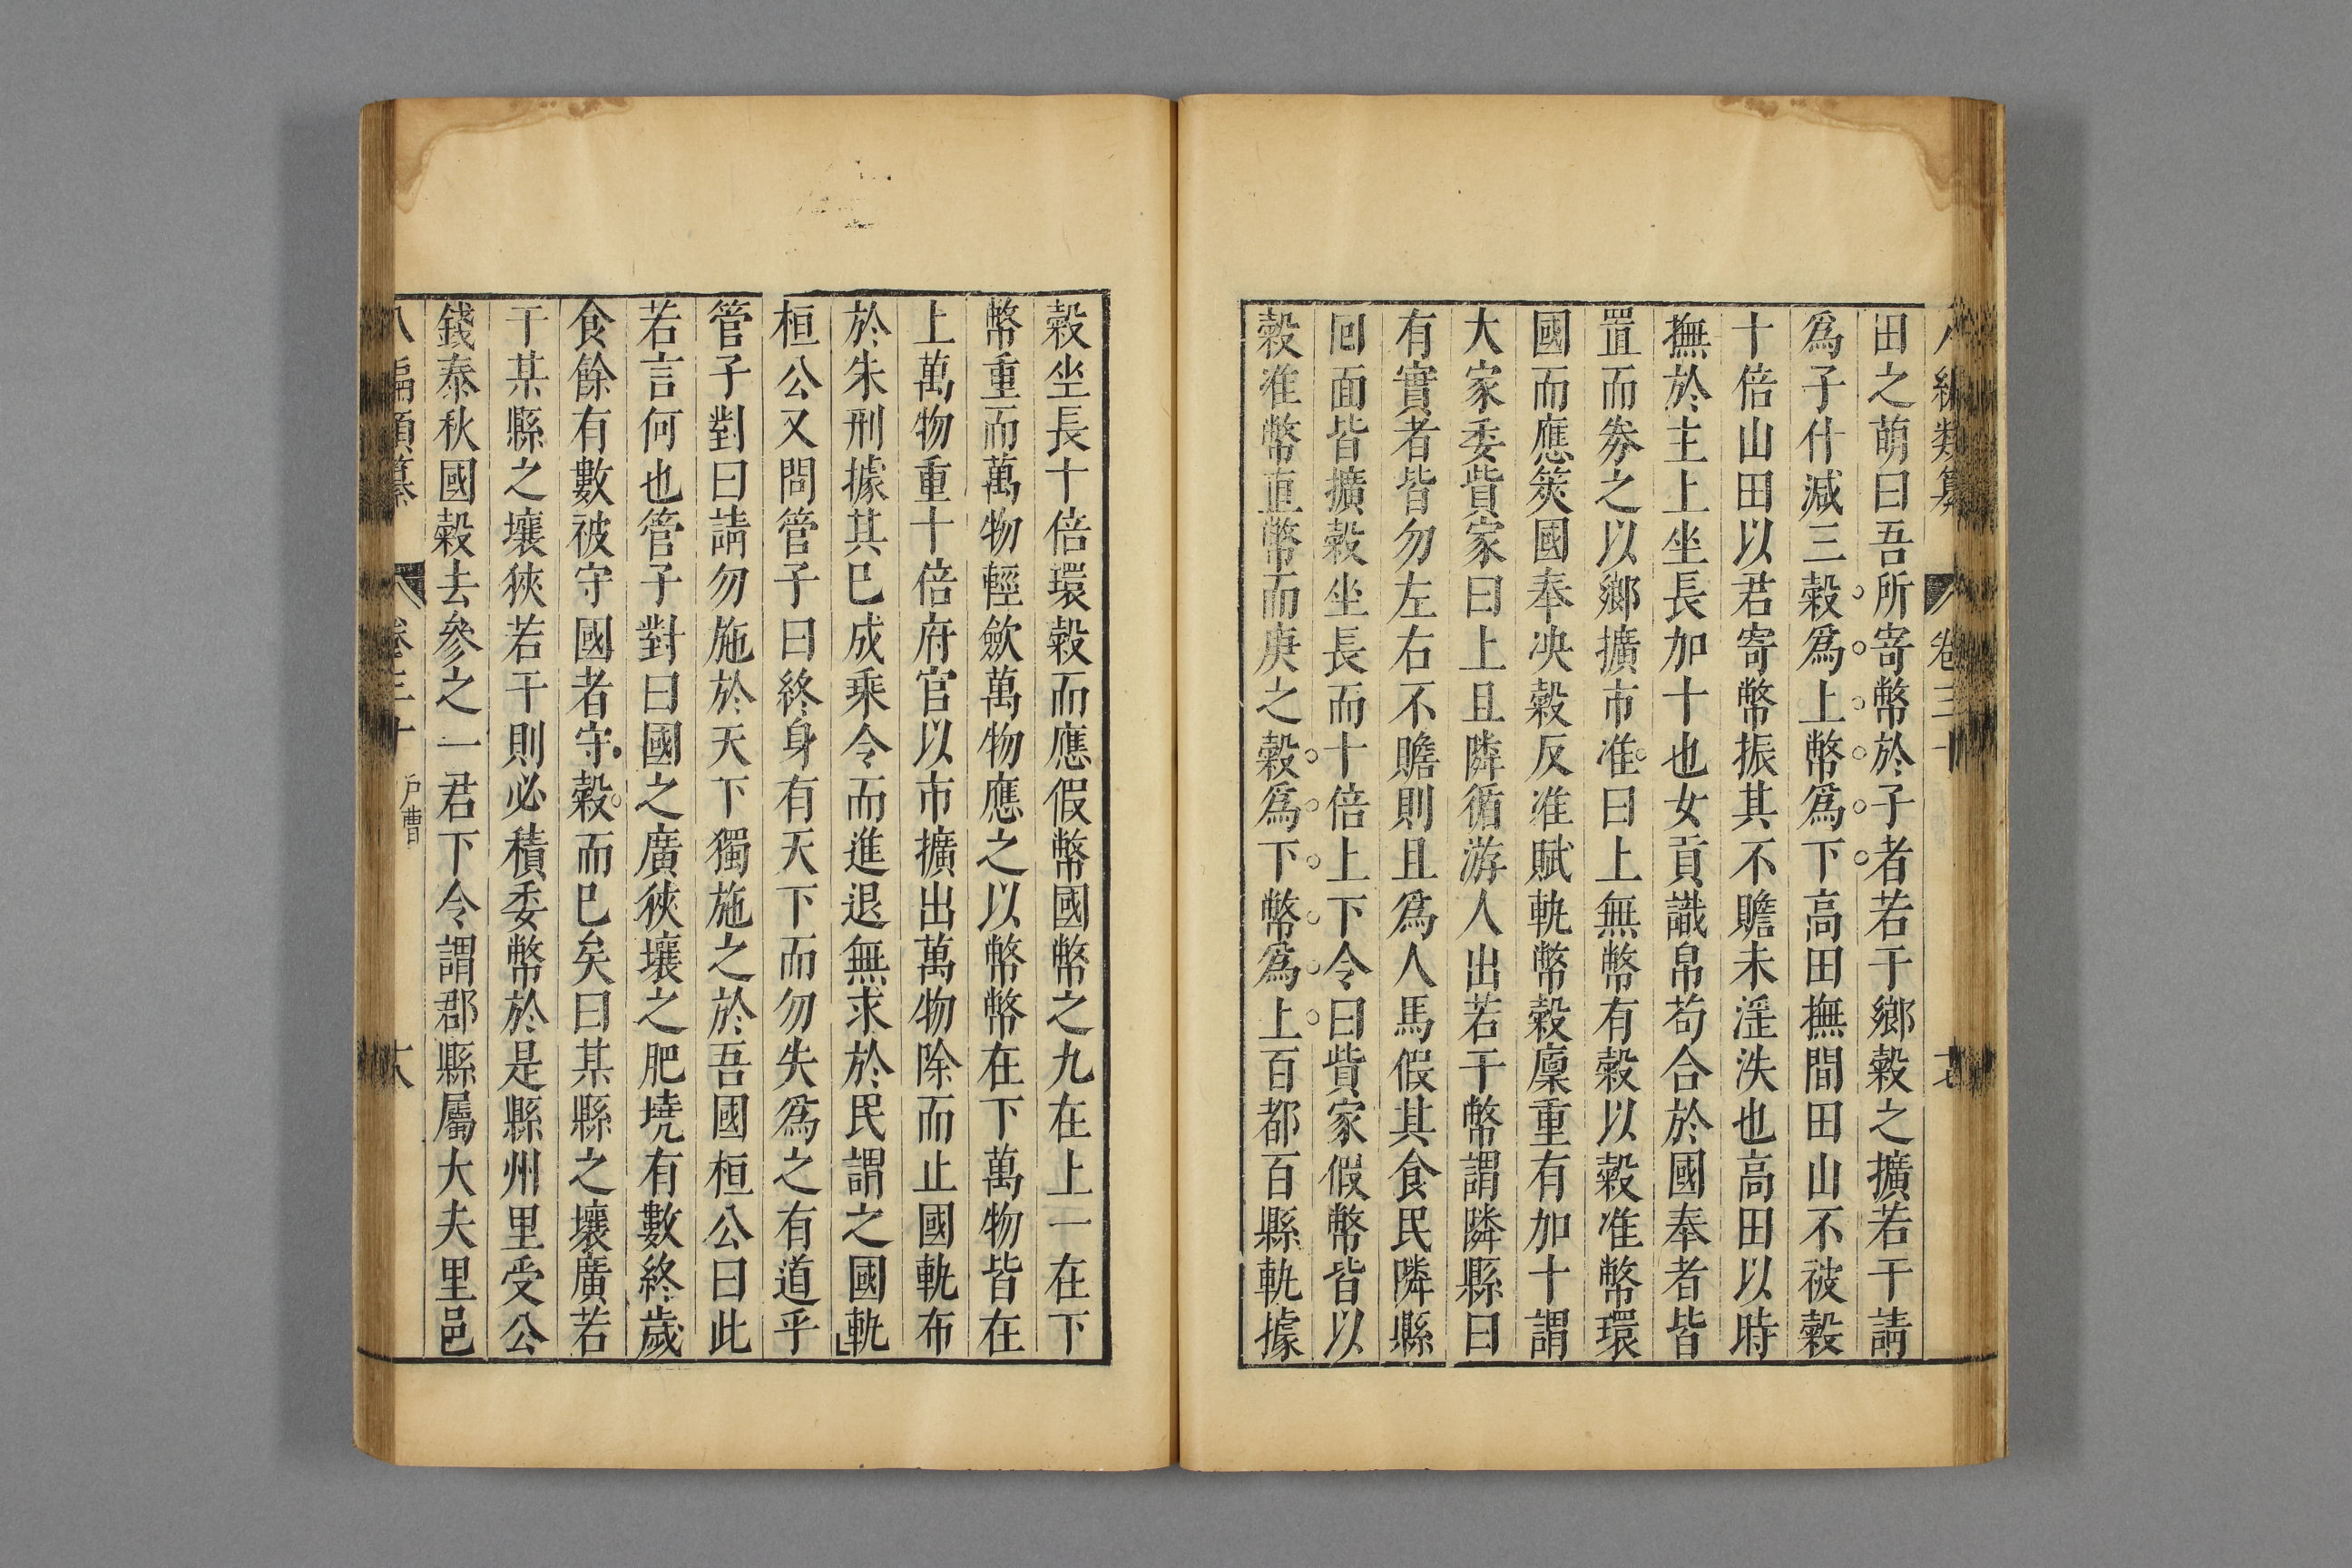 八編類纂 卷三十 十七
田之萌曰吾所寄幣於子者若干鄉穀之擴若干請
爲子什減三穀爲上幣爲下高田撫間田山不被穀
十倍山田以君寄幣振其不贍未淫泆也高田以時
撫於主上坐長加十也女貢識帛苟合於國奉者皆
置而券之以鄉擴市准曰上無幣有穀以穀准幣環
國而應筴國奉決穀反准賦軌幣穀廩重有加十謂
大家委貲家曰上且隣循游人出若干幣謂隣縣曰
有實者皆勿左右不贍則且爲人馬假其食民隣縣
囘面皆擴穀坐長而十倍上下令曰貲家假幣皆以
穀准幣直幣而庚之穀爲下幣爲上百都百縣軌據
穀坐長十倍環穀而應假幣國幣之九在上一在下
幣重而萬物輕歛萬物應之以幣幣在下萬物皆在
上萬物重十倍府官以市擴出萬物除而止國軌布
於朱刑據其已成乘令而進退無求於民謂之國軌
桓公又問管子曰終身有天下而勿失爲之有道乎
管子對曰請勿施於天下獨施之於吾國桓公曰此
若言何也管子對曰國之廣狹壤之肥墝有數終歲
食餘有數被守國者守穀而已矣曰某縣之壤廣若
干某縣之壤狹若干則必積委幣於是縣州里受公
錢泰秋國穀去參之一君下令謂郡縣屬大夫里邑
八編類纂 卷三十 戶曹 十八